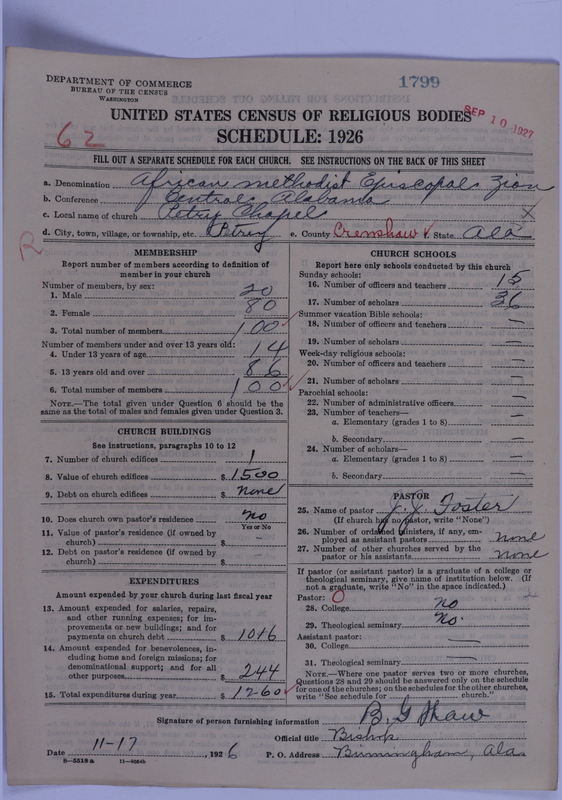 1799
DEPARTMENT OF COMMERCE
BUREAU OF THE CENSUS
WASHINGTON
SEP 10 1927
UNITED STATES CENSUS OF RELIGIOUS BODIES
62
SCHEDULE: 1926
FILL OUT A SEPARATE SCHEDULE FOR EACH CHURCH. SEE INSTRUCTIONS ON THE BACK OF THIS SHEET
a. Denomination African Methodist Episcopal Zion
b. Conference Central Alabama
c. Local name of church Petry Chapel X
d. City, town, village, or township, etc. Petry e. County Crenshaw f. State Ala
R
MEMBERSHIP
Report number of members according to definition of
member in your church
Number of members, by sex:
1. Male 20
2. Female 80
3. Total number of members 100
Number of members under and over 13 years old:
4. Under 13 years of age 14
5. 13 years old and over 86
6. Total number of members 100
NOTE.—The total given under Question 6 should be the
same as the total of males and females given under Question 3.
CHURCH BUILDINGS
See instructions, paragraphs 10 to 12
7. Number of church edifices 1
8. Value of church edifices $ 1500
9. Debt on church edifices $ None
10. Does church own pastor's residence No
Yes or No
11. Value of pastor's residence (if owned by
church) $ —
12. Debt on pastor's residence (if owned by
church) $ —
EXPENDITURES
Amount expended by your church during last fiscal year
13. Amount expended for salaries, repairs,
and other running expenses; for im-
provements or new buildings; and for
payments on church debt $ 1016
14. Amount expended for benevolences, in-
cluding home and foreign missions; for
denominational support; and for all
other purposes $ 244
15. Total expenditures during year $ 1260
CHURCH SCHOOLS
Report here only schools conducted by this church
Sunday schools:
16. Number of officers and teachers 15
17. Number of scholars 36
Summer vacation Bible schools:
18. Number of officers and teachers —
19. Number of scholars —
Week-day religious schools:
20. Number of officers and teachers —
21. Number of scholars —
Parochial schools:
22. Number of administrative officers —
23. Number of teachers—
a. Elementary (grades 1 to 8) —
b. Secondary —
24. Number of scholars—
a. Elementary (grades 1 to 8) —
b. Secondary —
PASTOR
25. Name of pastor J. J. Foster
(If church has no pastor, write "None")
26. Number of ordained ministers, if any, em-
ployed as assistant pastors None
27. Number of other churches served by the
pastor or his assistants None
If pastor (or assistant pastor) is a graduate of a college or
theological seminary, give name of institution below. (If
not a graduate, write "No" in the space indicated.)
Pastor: 0
28. College No
29. Theological seminary No.
Assistant pastor:
30. College —
31. Theological seminary —
NOTE.—Where one pastor serves two or more churches,
Questions 28 and 29 should be answered only on the schedule
for one of the churches; on the schedules for the other churches,
write "See schedule for church."
Signature of person furnishing information B. G. Shaw
Official title Bishop
Date 11-17, 1926 P. O. Address Birmingham, Ala
8—5518 a 11—9004b